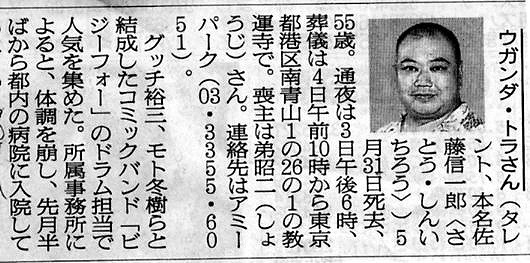 ウガンダ・トラさん(タレ
ント、本名佐
藤信一郎〈さ
とう・しんい
ちろう〉)5
月31日死去、
55歳。通夜は3日午後6時、
葬儀は4日午前10時から東京
都港区南青山1の26の1の教
運寺で。喪主は弟昭二(しょ
うじ)さん。連絡先はアミー
パーク(03・3355・60
51)。
グッチ裕三、モト冬樹らと
結成したコミックバンド「ビ
ジーフォー」のドラム担当で
人気を集めた。所属事務所に
よると、体調を崩し、先月半
ばから都内の病院に入院して